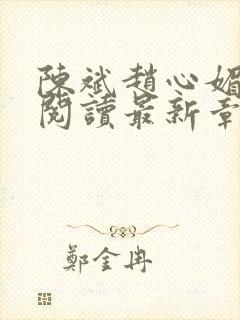 陳斌趙心媚
閱讀最新章
鄭金冉